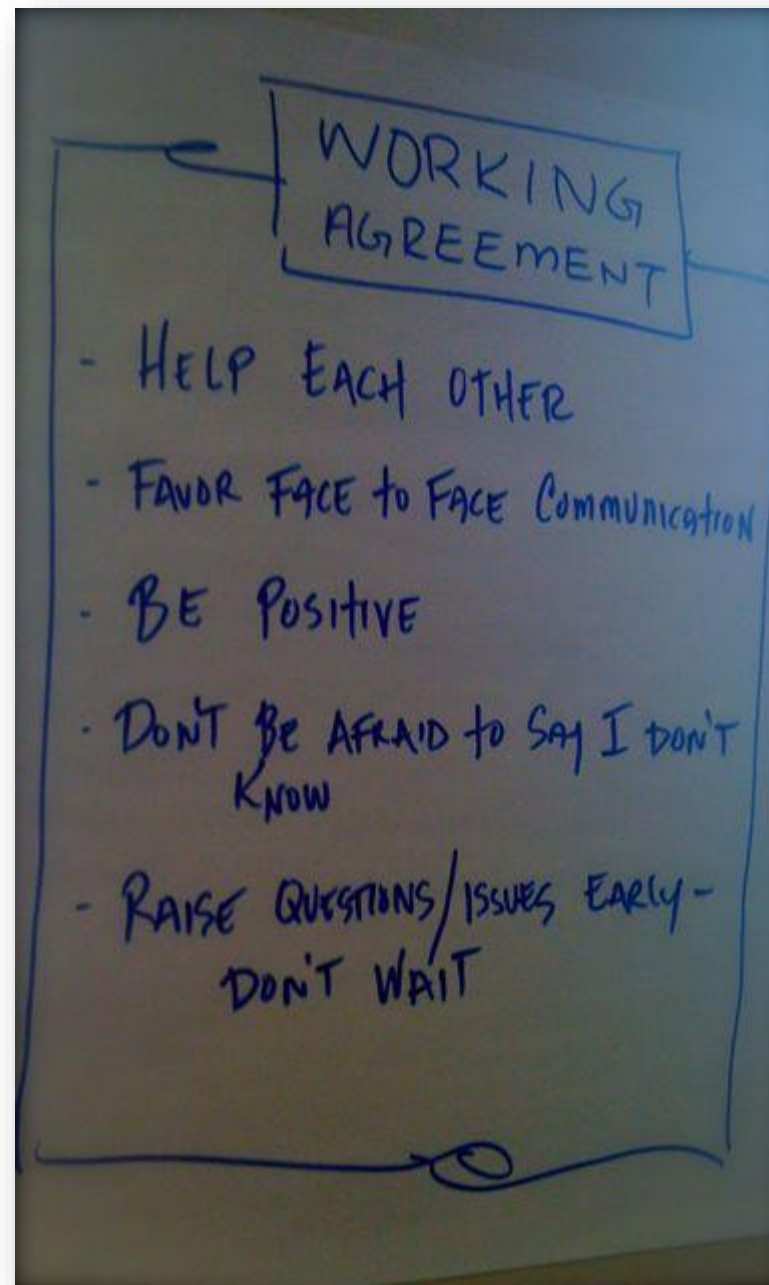 WORKING
AGREEMENT
- HELP EACH OTHER
- FAVOR FACE to FACE COMMUNICATION
- BE POSITIVE
- DON'T BE AFRAID to SAY I DON'T
KNOW
- RAISE QUESTIONS/ISSUES EARLY -
DON'T WAIT